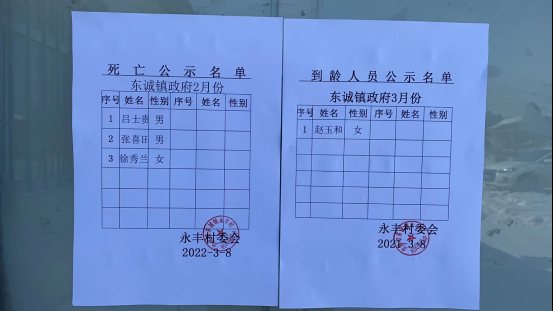 死亡公示名单
东诚镇政府2月份
序号 姓名 性别 序号 姓名 性别
1 吕士贵 男
2 张喜田 男
3 徐秀兰 女
永丰村委会
2022-3-8
到龄人员公示名单
东诚镇政府3月份
序号 姓名 性别 序号 姓名 性别
1 赵玉和 女
永丰村委会
2021-3-8